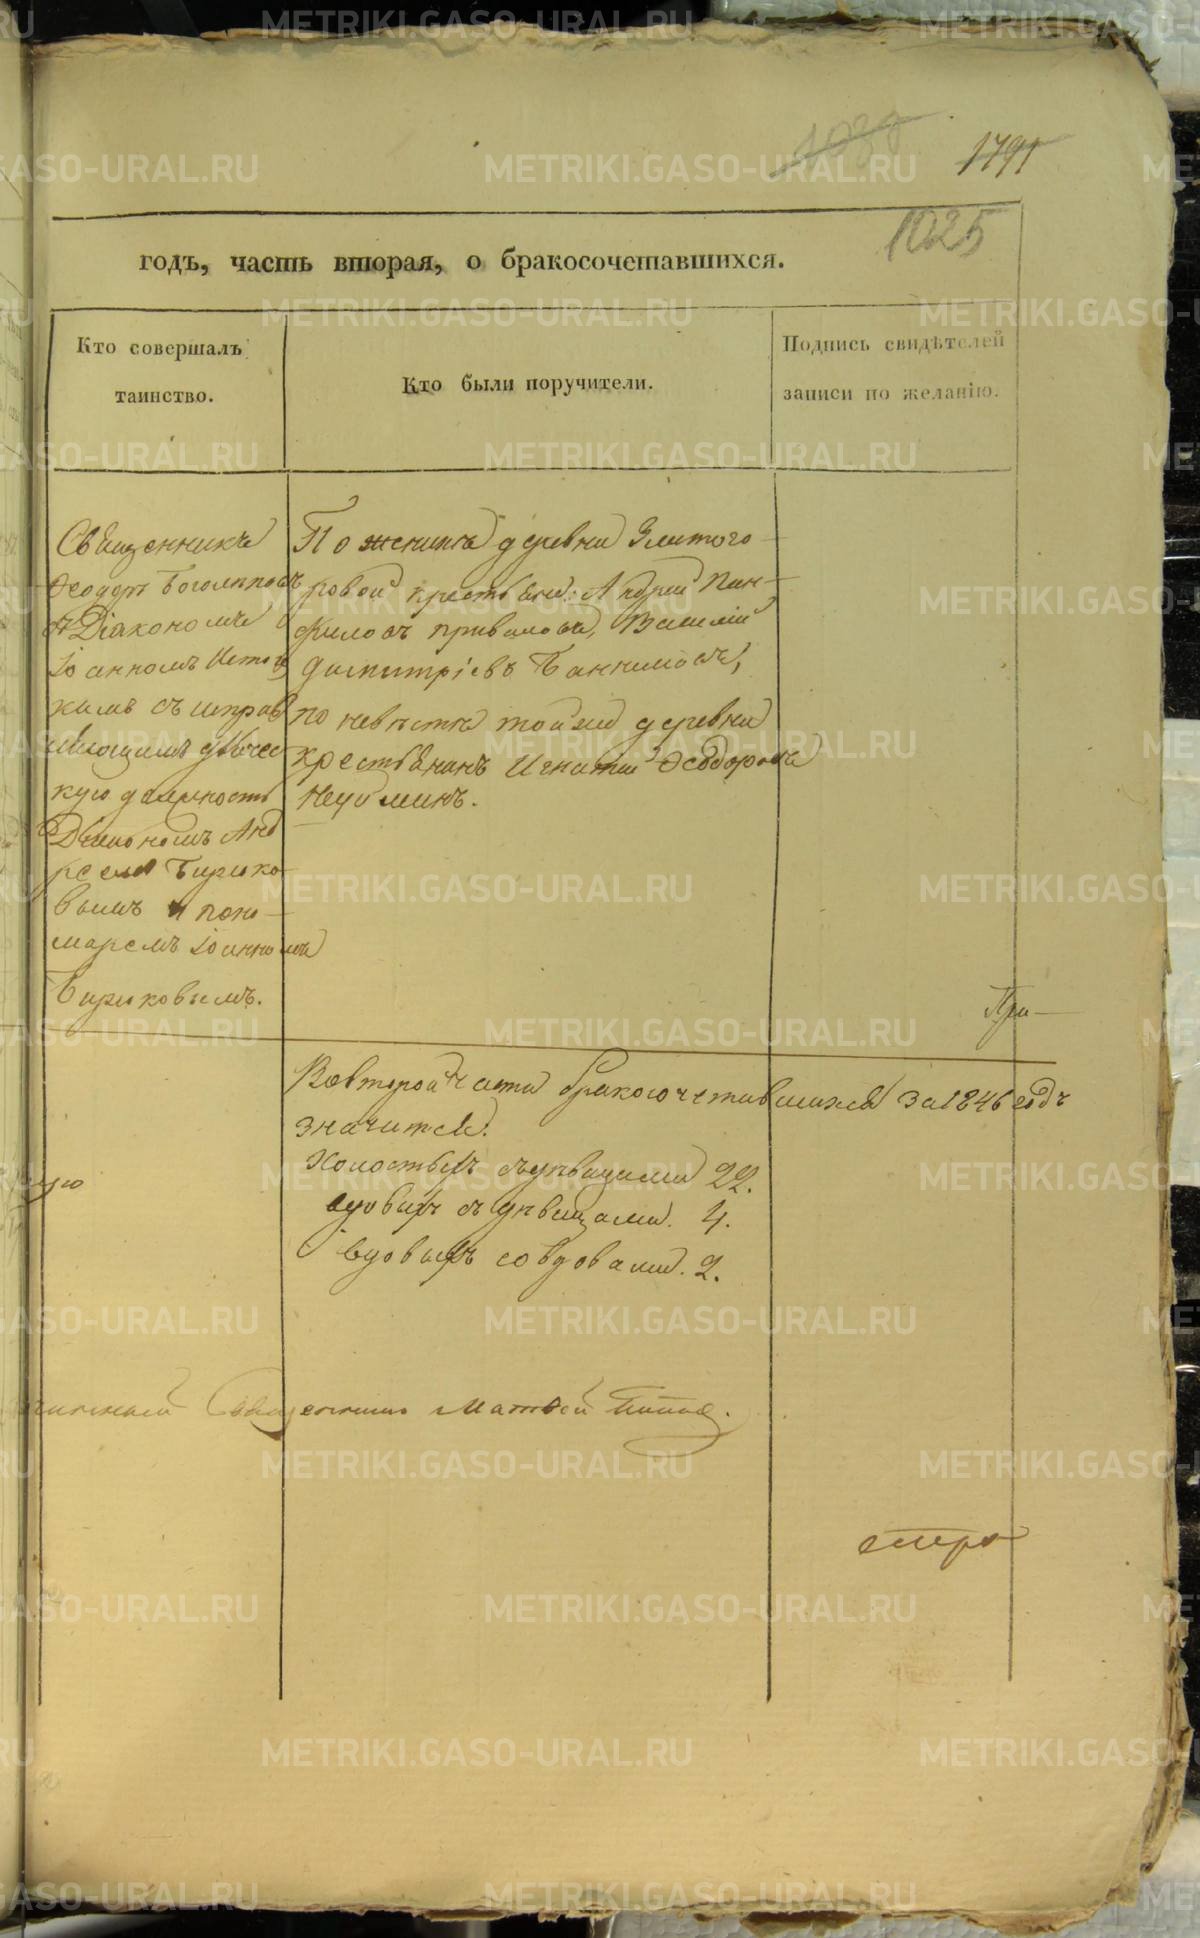 1791
1025
годъ, часть вторая, о бракосочетавшихся.
Кто совершалъ
таинство.
Кто были поручители.
Подпись свидѣтелей
записи по желанію.
Священникъ
Ѳеодоръ Боголѣповъ
съ Діакономъ
Іоанномъ
съ исправ
ляющимъ дьячес
кую должность
Діакономъ Анд
реемъ Бирюко-
вымъ и поно-
маремъ Іоанномъ
Бирюковымъ.
По женихѣ деревни Златого-
ровой крестьяне: Андрей Пан-
филовъ Приваловъ, Василій
Димитріевъ
по невѣстѣ той же деревни
крестьянинъ Игнатій Ѳеодоровъ
Неуйминъ.
При-
Во второй части бракосочетавшихся за 1846 годъ
значится.
Холостыхъ съ дѣвицами 22.
вдовыхъ съ дѣвицами. 4.
вдовыхъ со вдовами. 2.
Священникъ Матвей Попов.
METRIKI.GASO-URAL.RU